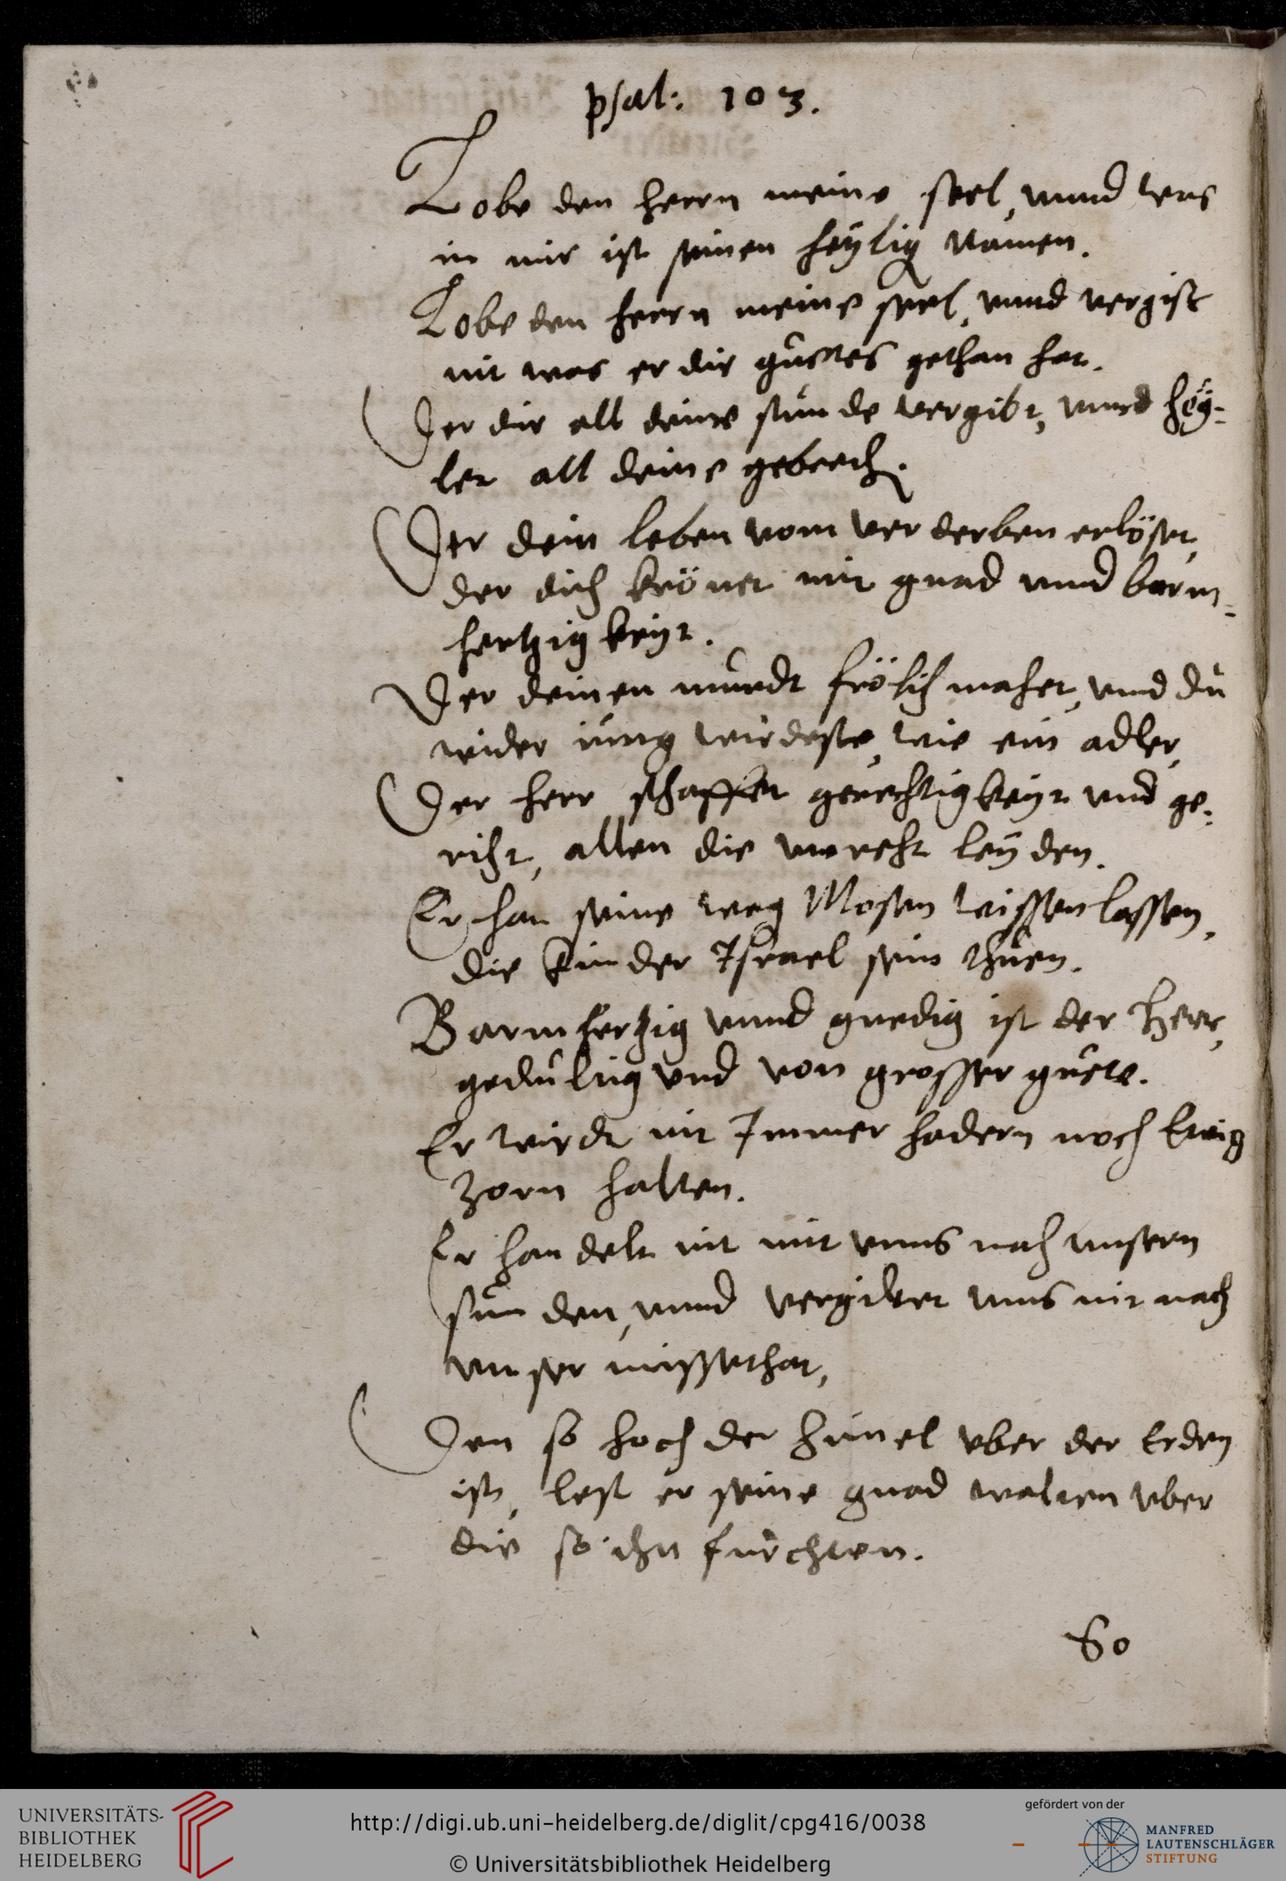 psal: 103.
Lobe den herrn meine seel, vnnd was
in mir ist seinen heylig Namen.
Lobe den herrn meine seel, vnnd vergist
nit was er dir guttes gethan hat.
Der dir all deine sunde vergibt, vnnd hey-
let all deine gebrech.
Der dein leben vom verderben erlöset,
der dich krönet mit gnad vnnd barm-
hertzigkeyt.
Der deinen mundt frölich machet, vnnd du
wider jung wirdeste, wie ein adler,
Der herr schaffet gerechtigkeyt vnd ge-
richt, allen die vnrecht leyden.
Er hat seine weg Mosen wissen lassen,
die kinder Israel sein thuen.
Barmhertzig vnnd gnedig ist der Herr,
gedultig vnd von grosser guete.
Er wirdt nit Immer hadern noch Ewig
zorn halten.
Er handelt nit mit vnns nach vnsern
sunden, vnnd vergiltet vnns nit nach
vnser missethat,
Den so hoch der himel vber der Erden
ist, lest er seine gnad walten vber
die so ihn furchten.
So
UNIVERSITÄTS-
BIBLIOTHEK
HEIDELBERG
http://digi.ub.uni-heidelberg.de/diglit/cpg416/0038
© Universitätsbibliothek Heidelberg
gefördert von der
MANFRED
LAUTENSCHLÄGER
STIFTUNG